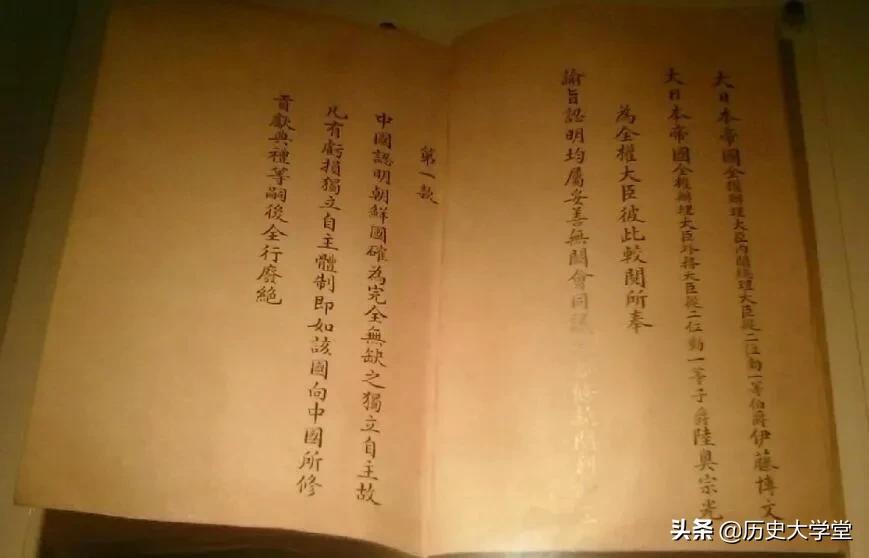 大日本帝國全權辦理大臣內閣總理大臣從二位勳一等伯爵伊藤博文
大日本帝國全權辦理大臣外務大臣從二位勳一等子爵陸奧宗光
為全權大臣彼此較閱所奉
諭旨認明均屬妥善無闕會同議條款開列
第一款
中國認明朝鮮國確為完全無缺之獨立自主故
凡有虧損獨立自主體制即如該國向中國所修
貢獻典禮等嗣後全行廢絕
头条 @历史大学堂